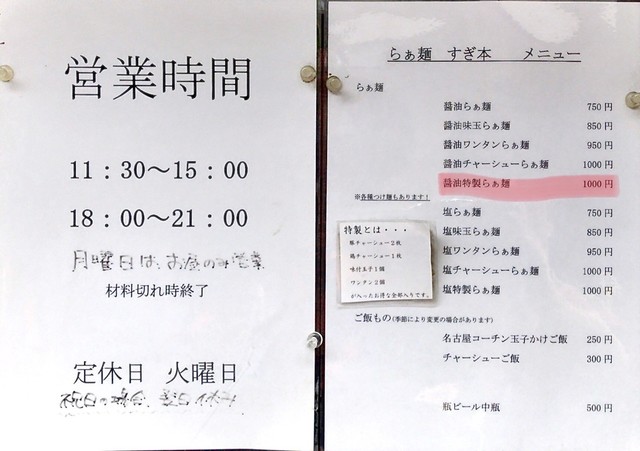 営業時間
11：30～15：00
18：00～21：00
月曜日は、お昼のみ営業
材料切れ時終了
定休日　火曜日
らぁ麺　すぎ本　　メニュー
らぁ麺
醤油らぁ麺 750 円
醤油味玉らぁ麺 850 円
醤油ワンタンらぁ麺 950 円
醤油チャーシューらぁ麺 1000 円
醤油特製らぁ麺 1000 円
※各種つけ麺もあります！
塩らぁ麺 750 円
塩味玉らぁ麺 850 円
塩ワンタンらぁ麺 950 円
塩チャーシューらぁ麺 1000 円
塩特製らぁ麺 1000 円
特製とは・・・
豚チャーシュー2枚
鶏チャーシュー1枚
味付玉子1個
ワンタン2個
が入ったお得な全部入りです。
ご飯もの(季節により変更の場合があります)
名古屋コーチン玉子かけご飯 250 円
チャーシューご飯 300 円
瓶ビール中瓶 500 円